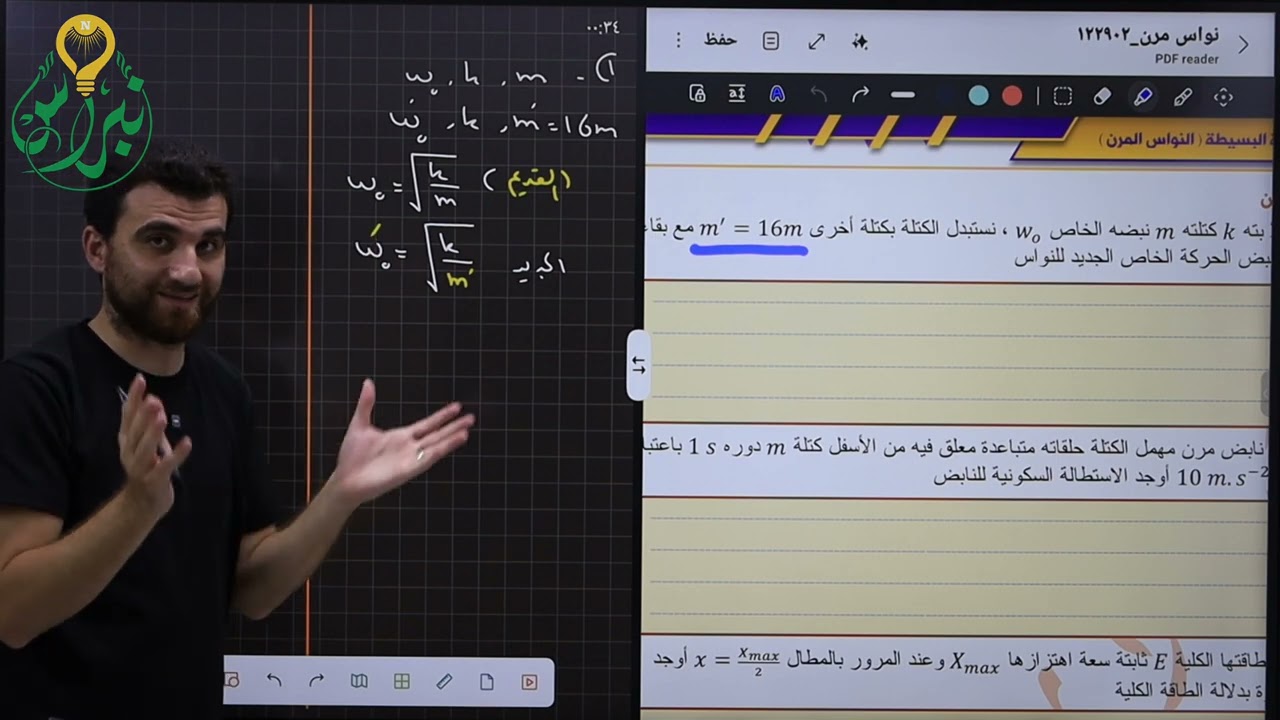 نبراس
N
٠٠:٣٤
1) - m , k , ω₀
ω₀′ , k , m′ = 16m
ω₀ = √(k/m) (القديم)
ω₀′ = √(k/m′) الجديد
نواس مرن_١٢٢٩٠٢
PDF reader
حفظ
ة البسيطة ( النواس المرن )
بته k كتلته m نبضه الخاص w₀ ، نستبدل الكتلة بكتلة أخرى m′ = 16m مع بقاء
بض الحركة الخاص الجديد للنواس
نابض مرن مهمل الكتلة حلقاته متباعدة معلق فيه من الأسفل كتلة m دوره 1 s باعتبا
10 m.s⁻² أوجد الاستطالة السكونية للنابض
طاقتها الكلية E ثابتة سعة اهتزازها Xmax وعند المرور بالمطال x = Xmax/2 أوجد
ة بدلالة الطاقة الكلية